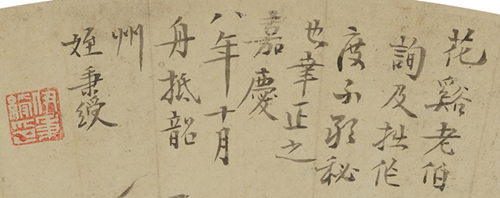 花谿老伯
詢及拙作
度不敢秘
也幸正之
嘉慶
八年十月
舟抵韶
州
姪秉綬
伊秉綬印